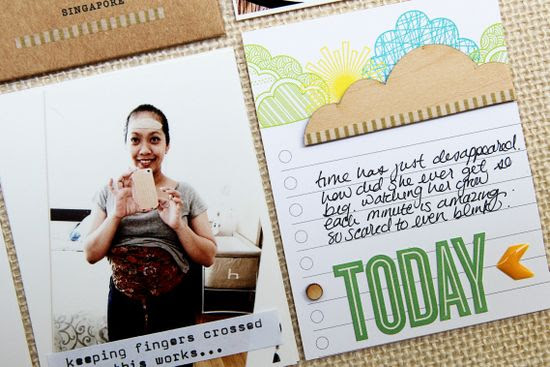 SINGAPORE
time has just disappeared.
how did she ever get so
big. watching her grow
each minute is amazing.
so scared to even blink.
TODAY
keeping fingers crossed
this works...